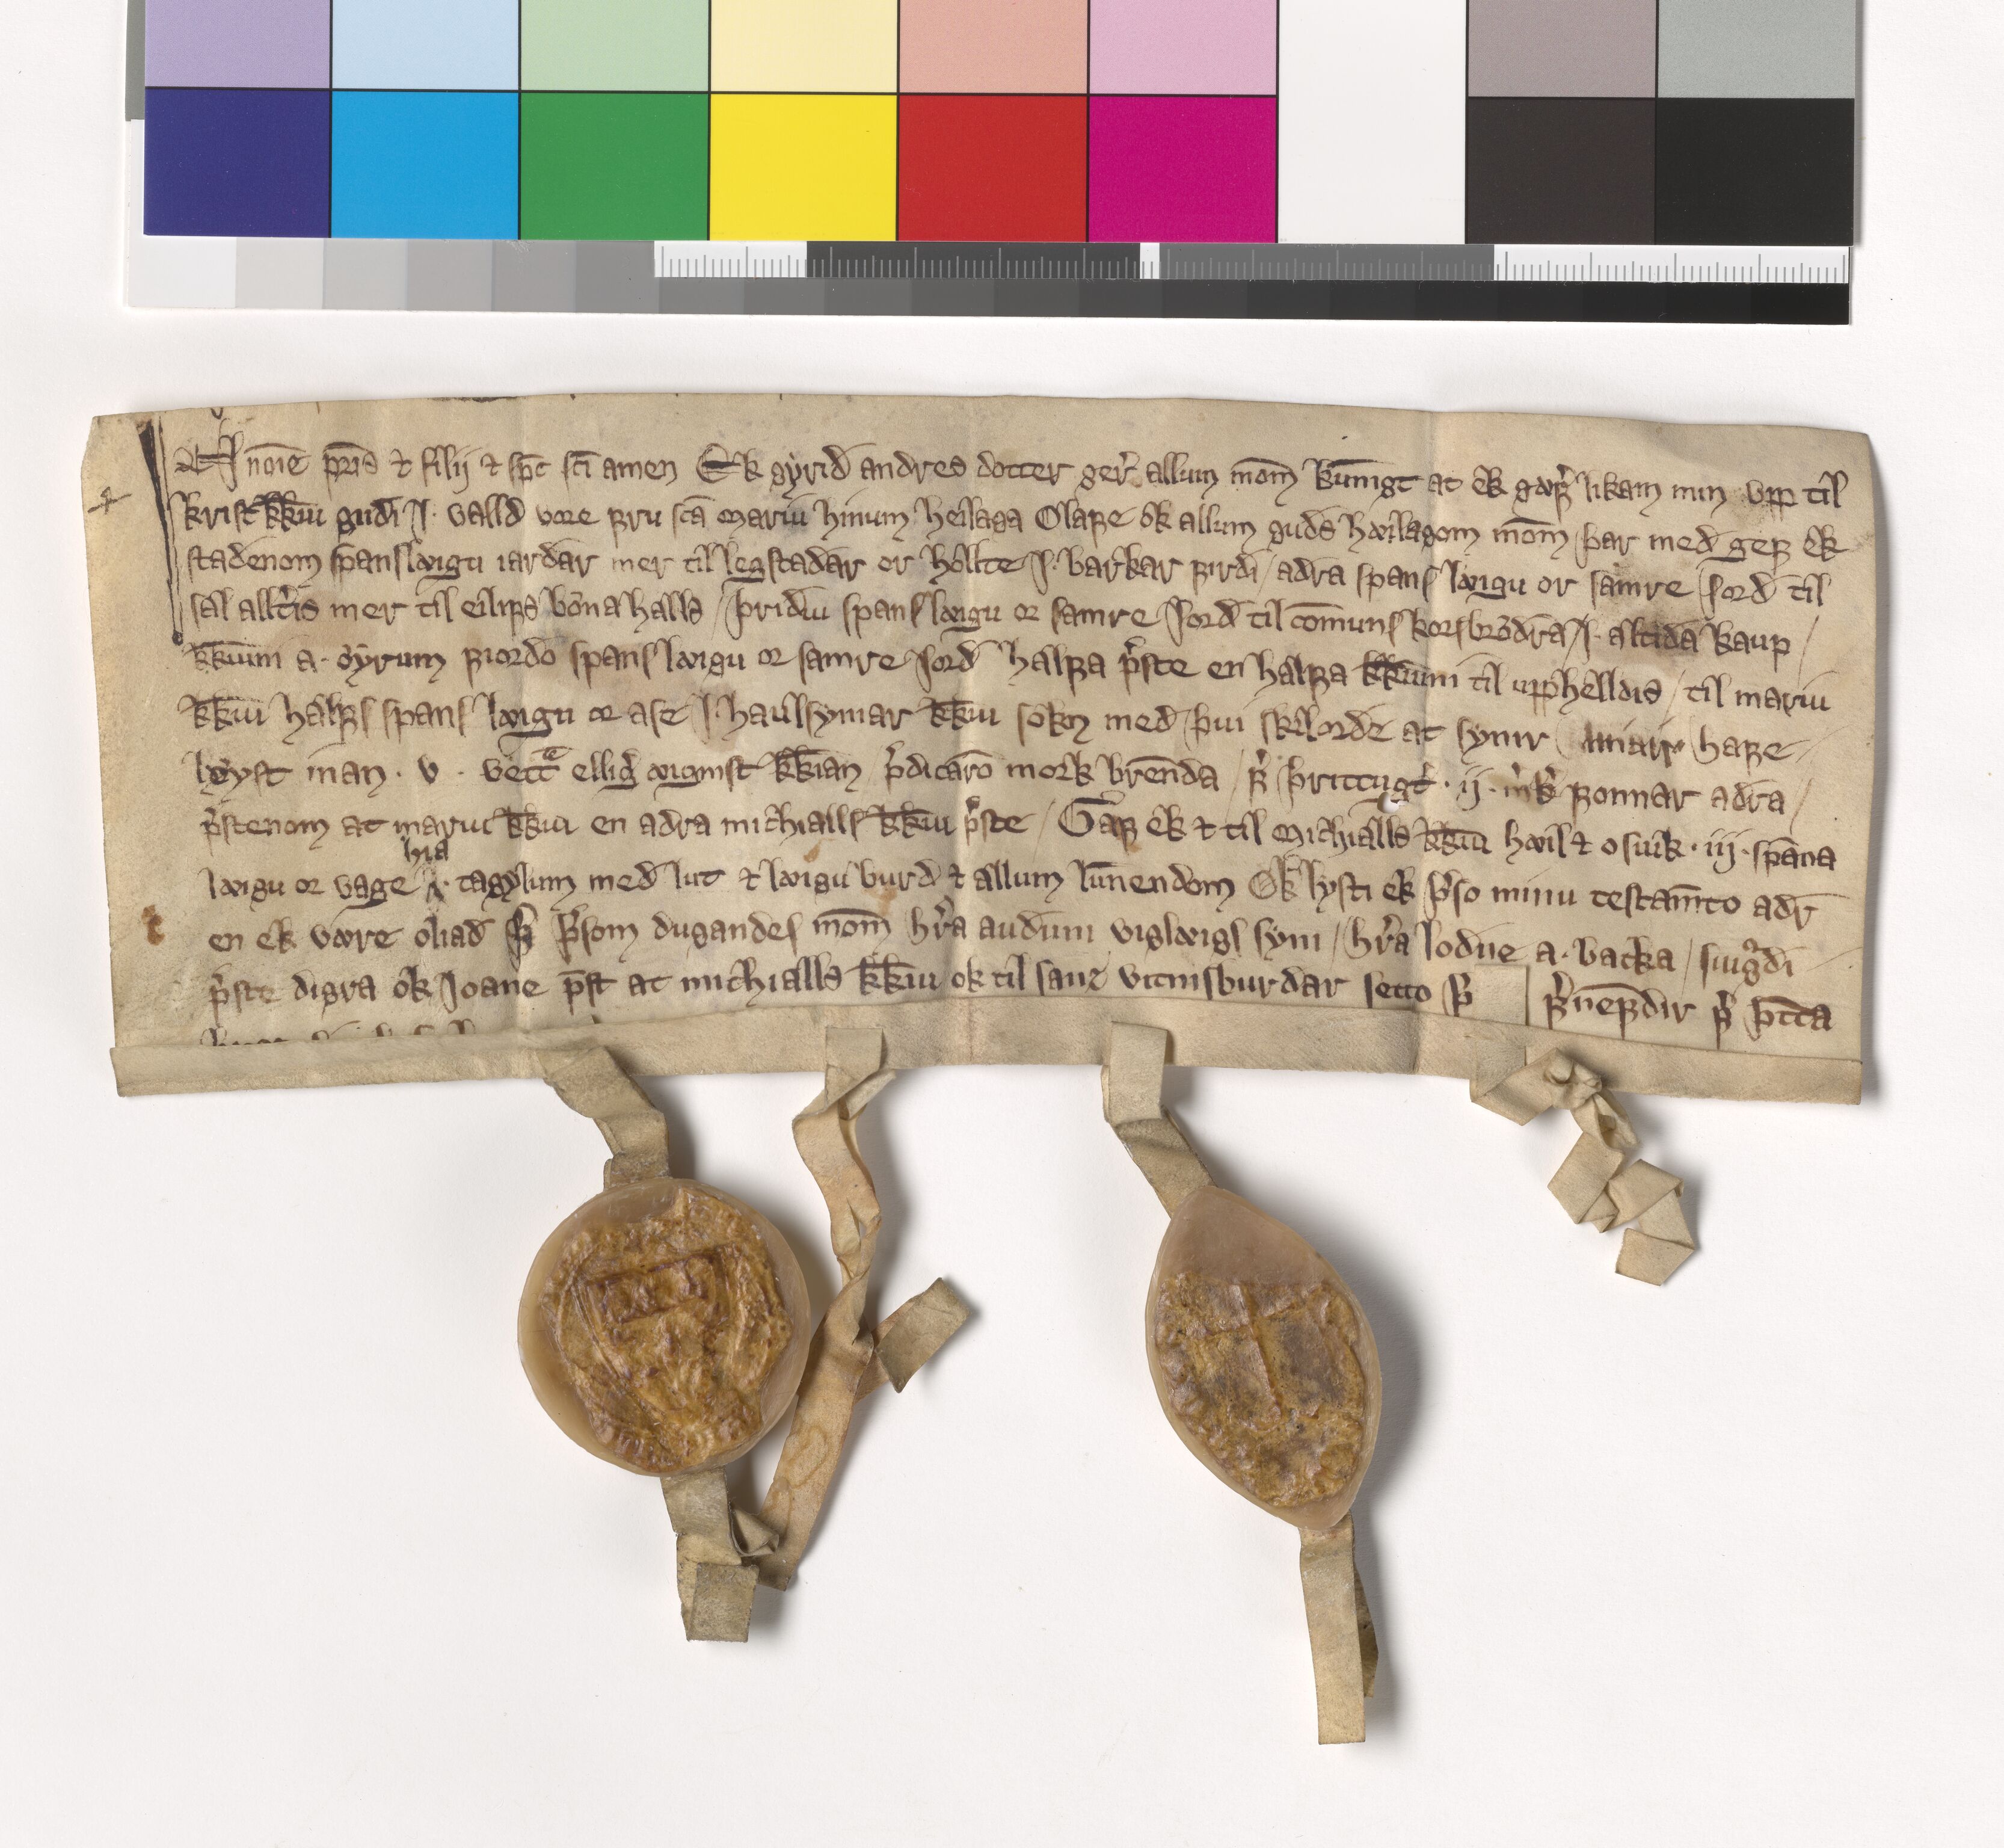 J no͞ıe pr͞ıs ⁊ filij ⁊ sp͞c sc͞ı amen Ek gyrid andres dotter ger͛ allum mo͞m ku͞nigt at ek gæf͛ likam min vpp til
krist kk͞iu gudi J· valld vore fru sc͞a mariu hinum heilaga Olafe ok allum guds hæilagom mo͞m þar med gef ek
stadenom spans læigu iardar mer til legstadar or hollte J· barkar firdi / adra spans læigu or samre Jord til
sal allt͛is mer til eilifs bo͞na halls / þridiu spans læigu or samre Jord til co͞muns korsbrod͞ra J· altida kaup /
kk͞iuni a· oyrum fiordo spans læigu or samre Jord halfa p͛ste en halfa kk͞iuni til upphelldis / til mariu
kk͞iu halfs spans læigu or ase J· haulsyniar kk͞iu sokn med þui skilorde at synir minir hafe
løyst inan · v · vett͞e ellig͛ æignist kk͞ian / p͛dicar͞o mork bre͞nda / f͛ þrittugt͛ · ij · m͛k͛ fonnar ad͞ra /
p͛stenom at mariu kk͞iu en adra michialls kk͞iu p͛ste / Gaf ek ⁊ til michialls kk͞iu hæil ⁊ osiuk · iij · spa͞na
læigu or vage hia tagylum med lut ⁊ læigu burd ⁊ allum lu͞nendom Ok lysti ek þ͛so minu testam͞to ad͞r
en ek være oliad f͛ þ͛som dugandes mo͞m h͛ra auduni viglæigs syni / h͛ra lodne a· backa / siug͛di
p͛ste digra ok Joane p͞st at michialls kk͞iu ok til san͛ vitnisburdar setto f͛ f͛nefdir f͛ þ͞tta